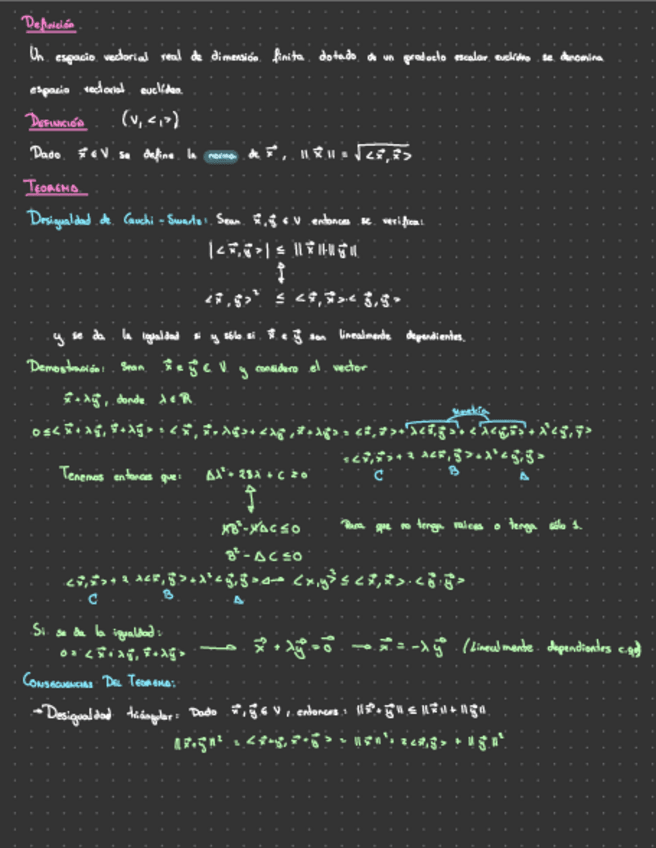 Definición
Un espacio vectorial real de dimensión finita dotado de un producto escalar euclídeo se denomina
espacio vectorial euclídeo.
DEFINICIÓN (V, <,>)
Dado x⃗ ∈ V se define la norma de x⃗, ||x⃗|| = √<x⃗,x⃗>
TEOREMA
Desigualdad de Cauchi-Swartz: Sean x⃗,y⃗ ∈ V entonces se verifica:
|<x⃗,y⃗>| ≤ ||x⃗||·||y⃗||
↕
<x⃗,y⃗>² ≤ <x⃗,x⃗>·<y⃗,y⃗>
y se da la igualdad si y sólo si x⃗ e y⃗ son linealmente dependientes.
Demostración: Sean x⃗ e y⃗ ∈ V y considero el vector
x⃗+λy⃗, donde λ∈ℝ
simetría
0≤<x⃗+λy⃗, x⃗+λy⃗> = <x⃗, x⃗+λy⃗>+<λy⃗, x⃗+λy⃗> = <x⃗,x⃗>+λ<x⃗,y⃗>+<λ<y⃗,x⃗>+λ²<y⃗,y⃗>
=<x⃗,x⃗>+2λ<x⃗,y⃗>+λ²<y⃗,y⃗>
C B A
Tenemos entonces que: Aλ²+2Bλ+C≥0
↕
4B²-4AC≤0 Para que no tenga raíces o tenga sólo 1.
B²-AC≤0
<x⃗,x⃗>+2λ<x⃗,y⃗>+λ²<y⃗,y⃗> ↔ <x,y>² ≤ <x⃗,x⃗>·<y⃗,y⃗>
C B A
Si se da la igualdad:
0=<x⃗+λy⃗, x⃗+λy⃗> → x⃗+λy⃗=0⃗ → x⃗=-λy⃗ (Linealmente dependientes c.qd)
CONSECUENCIAS DEL TEOREMA:
→Desigualdad triángular: Dado x⃗,y⃗∈V, entonces: ||x⃗+y⃗|| ≤ ||x⃗||+||y⃗||
||x⃗+y⃗||² = <x⃗+y⃗, x⃗+y⃗> = ||x⃗||²+2<x⃗,y⃗>+||y⃗||²